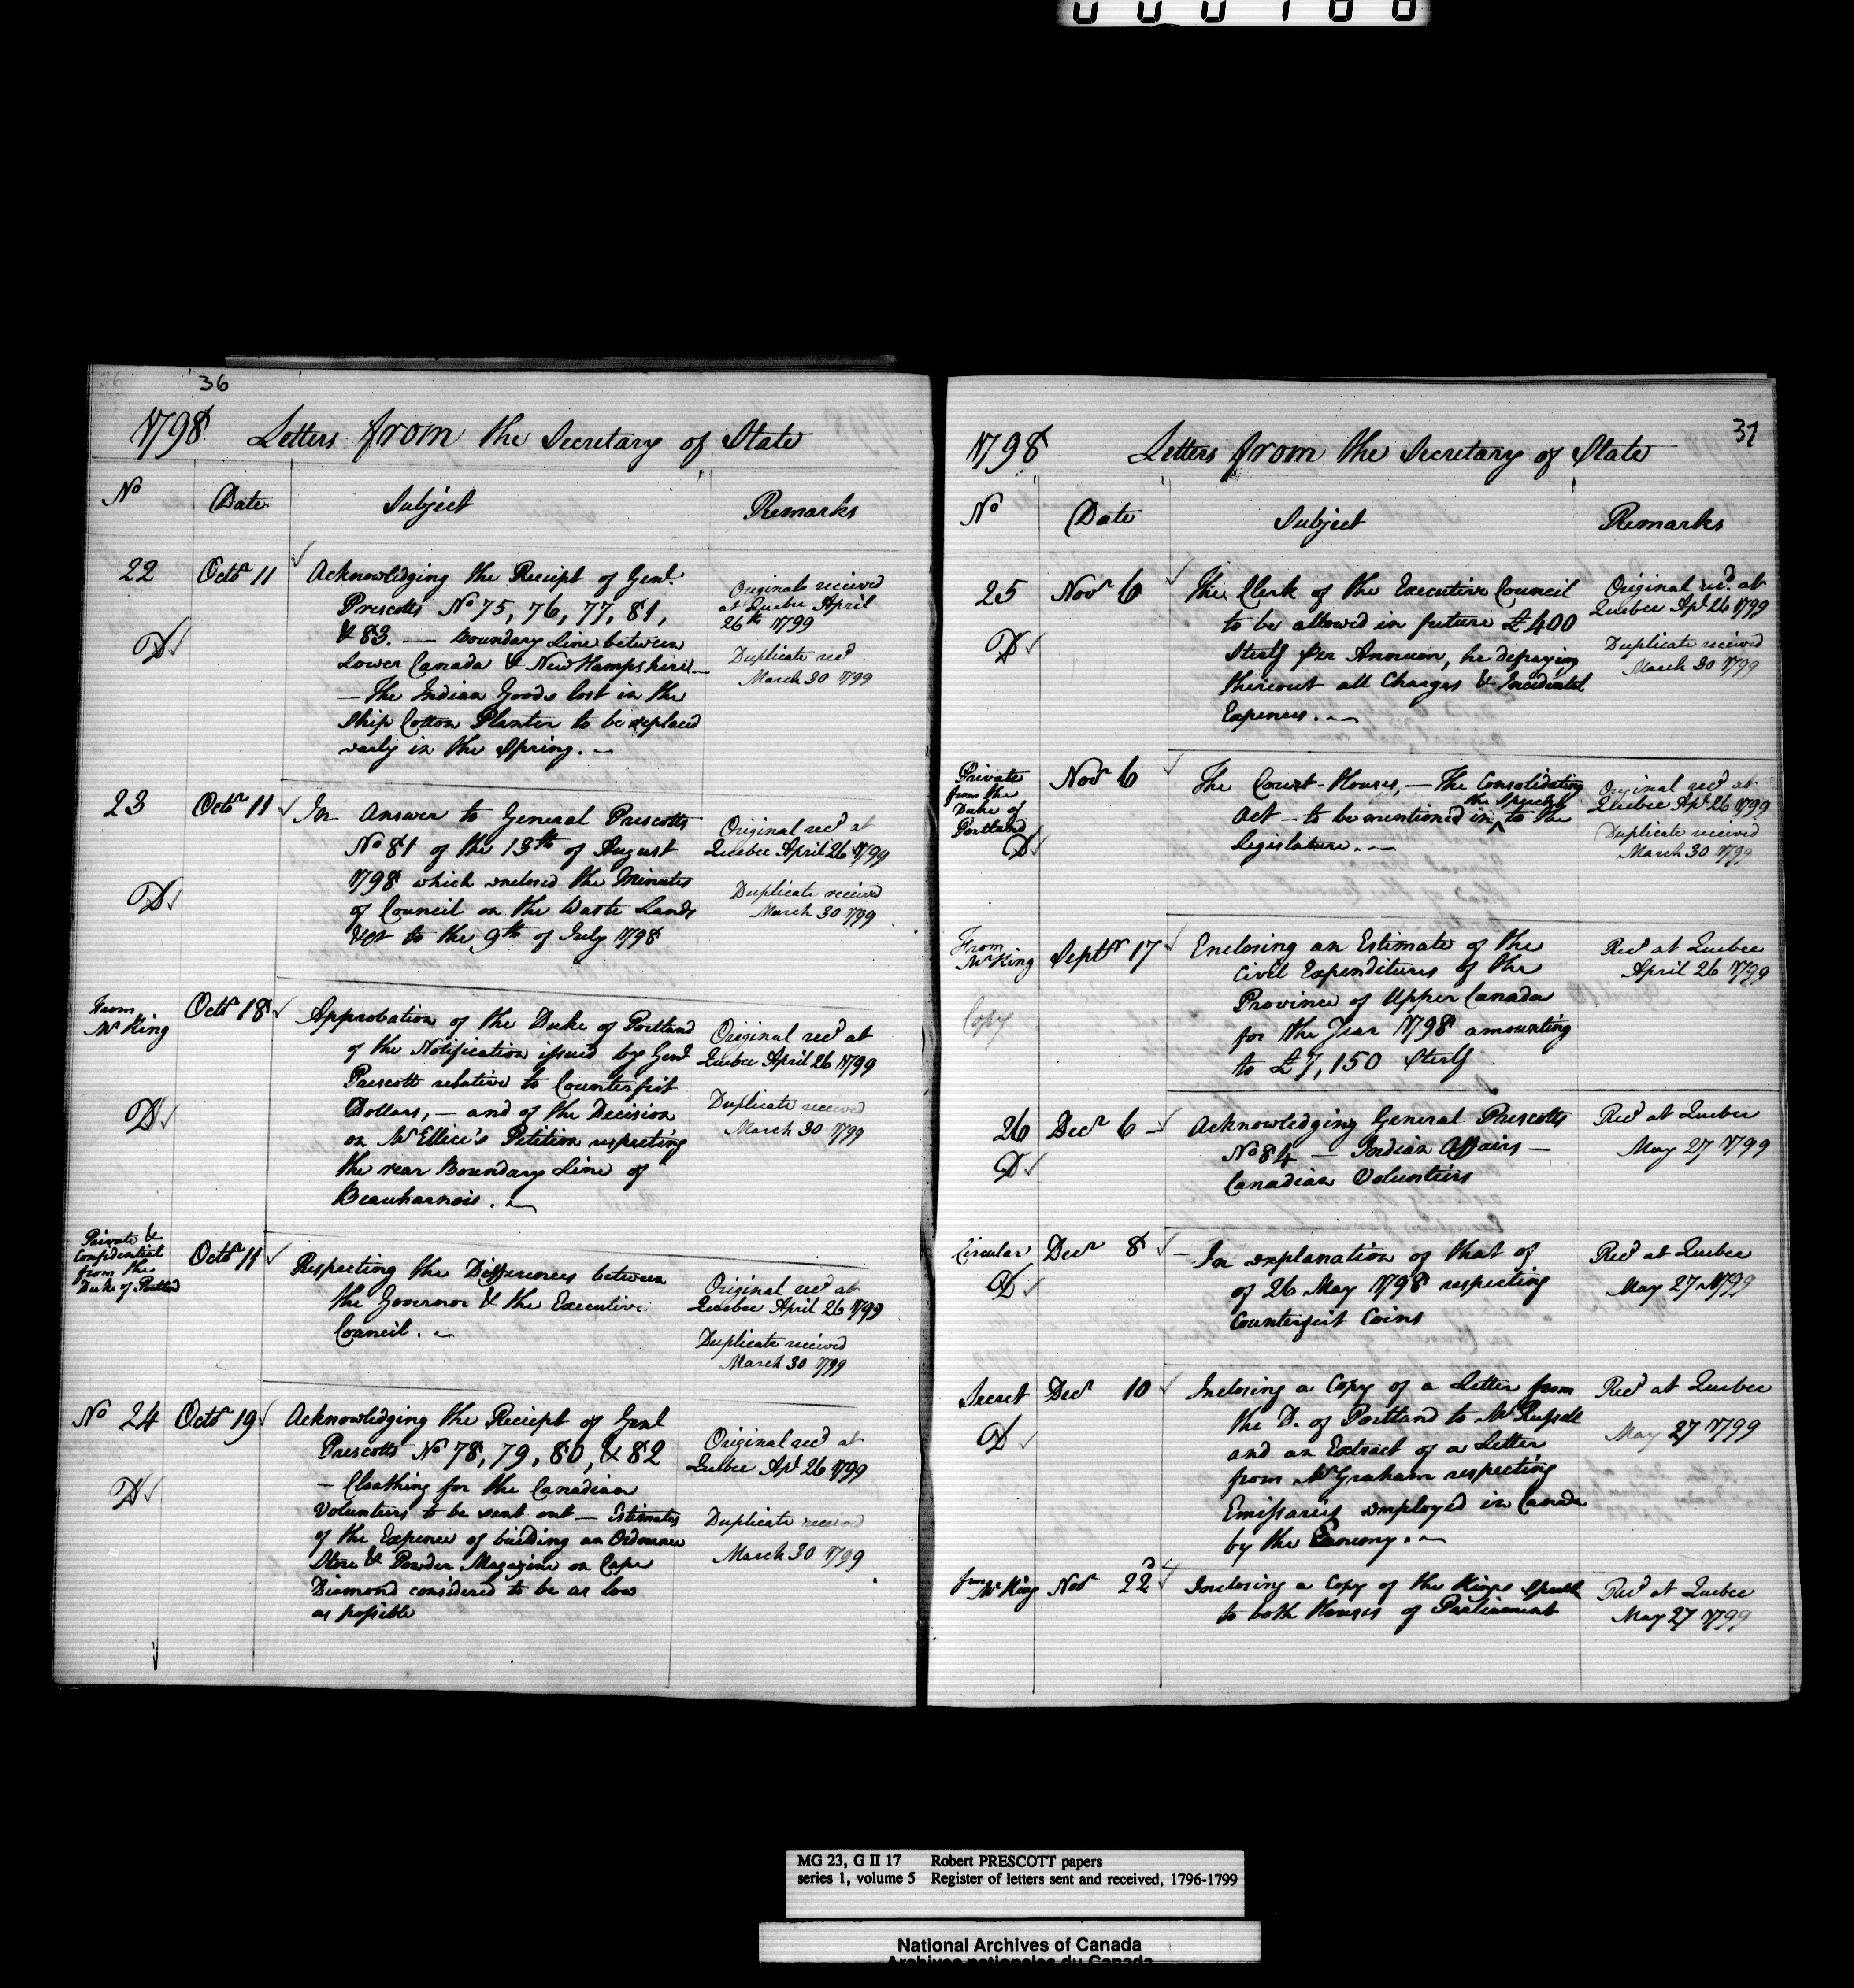 36
1798 Letters from the Secretary of State
No Date Subject Remarks
22 Octr 11 Acknowledging the Receipt of Genl
Prescotts No 75, 76, 77, 81,
& 83. — Boundary Line between
Lower Canada & New Hampshire —
— The Indian Goods lost in the
Ship Cotton Planter to be replaced
early in the Spring. —
D
Original recieved
at Quebec April
26th 1799
Duplicate recd
March 30 1799
23 Octr 11 In Answer to General Prescotts
No 81 of the 13th of August
1798 which enclosed the Minutes
of Council on the Waste Lands
&ca to the 9th of July 1798
D
Original recd at
Quebec April 26 1799
Duplicate recieved
March 30 1799
From
Mr King
Octr 18 Approbation of the Duke of Portland
of the Notification issued by Genl
Prescott relative to Counterfeit
Dollars, — and of the Decision
on Mr Ellice's Petition respecting
the rear Boundary Line of
Beauharnois. —
D
Original recd at
Quebec April 26 1799
Duplicate recieved
March 30 1799
Private &
Confidential
from the
Duke of Portland
Octr 11 Respecting the Differences between
the Governor & the Executive
Council. —
Original recd at
Quebec April 26 1799
Duplicate recieved
March 30 1799
No 24 Octr 19 Acknowledging the Reciept of Genl
Prescotts No 78, 79, 80, & 82
— Cloathing for the Canadian
Volunteers to be sent out — Estimates
of the Expence of building an Ordnance
Store & Powder Magazine on Cape
Diamond considered to be as low
as possible
D
Original recd at
Quebec Apl 26 1799
Duplicate recieved
March 30 1799
37
1798 Letters from the Secretary of State
No Date Subject Remarks
25 Novr 6 The Clerk of the Executive Council
to be allowed in future £400
Sterlg per Annum, he defraying
thereout all Charges & Incidental
Expences. —
D
Original recd at
Quebec Apl 26 1799
Duplicate recieved
March 30 1799
Private
from the
Duke of
Portland
D
Novr 6 The Court-Houses, — The Consolidating
Act — to be mentioned in the Speech to the
Legislature. —
Original recd at
Quebec Apl 26 1799
Duplicate recieved
March 30 1799
From
Mr King
Copy
Septr 17 Enclosing an Estimate of the
Civil Expenditures of the
Province of Upper Canada
for the Year 1798 amounting
to £7,150 Sterlg
Recd at Quebec
April 26 1799
26 Decr 6 Acknowledging General Prescotts
No 84 — Indian Affairs —
Canadian Volunteers
D
Recd at Quebec
May 27 1799
Circular Decr 8 — In explanation of that of
of 26 May 1798 respecting
Counterfeit Coins
D
Recd at Quebec
May 27 1799
Secret Decr 10 Inclosing a Copy of a Letter from
the D. of Portland to Mr Russell
and an Extract of a Letter
from Mr Graham respecting
Emissaries employed in Canada
by the Enemy. —
D
Recd at Quebec
May 27 1799
from
Mr King Novr 22d Inclosing a Copy of the Kings Speech
to both Houses of Parliament
Recd at Quebec
May 27 1799
MG 23, G II 17 Robert PRESCOTT papers
series 1, volume 5 Register of letters sent and received, 1796-1799
National Archives of Canada
Archives nationales du Canada